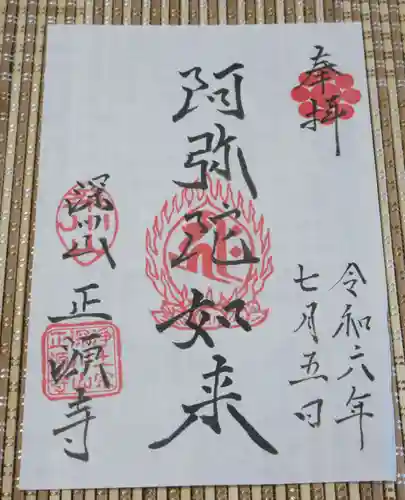 奉拝
令和六年
七月五日
阿弥陀如来
深山
正願寺